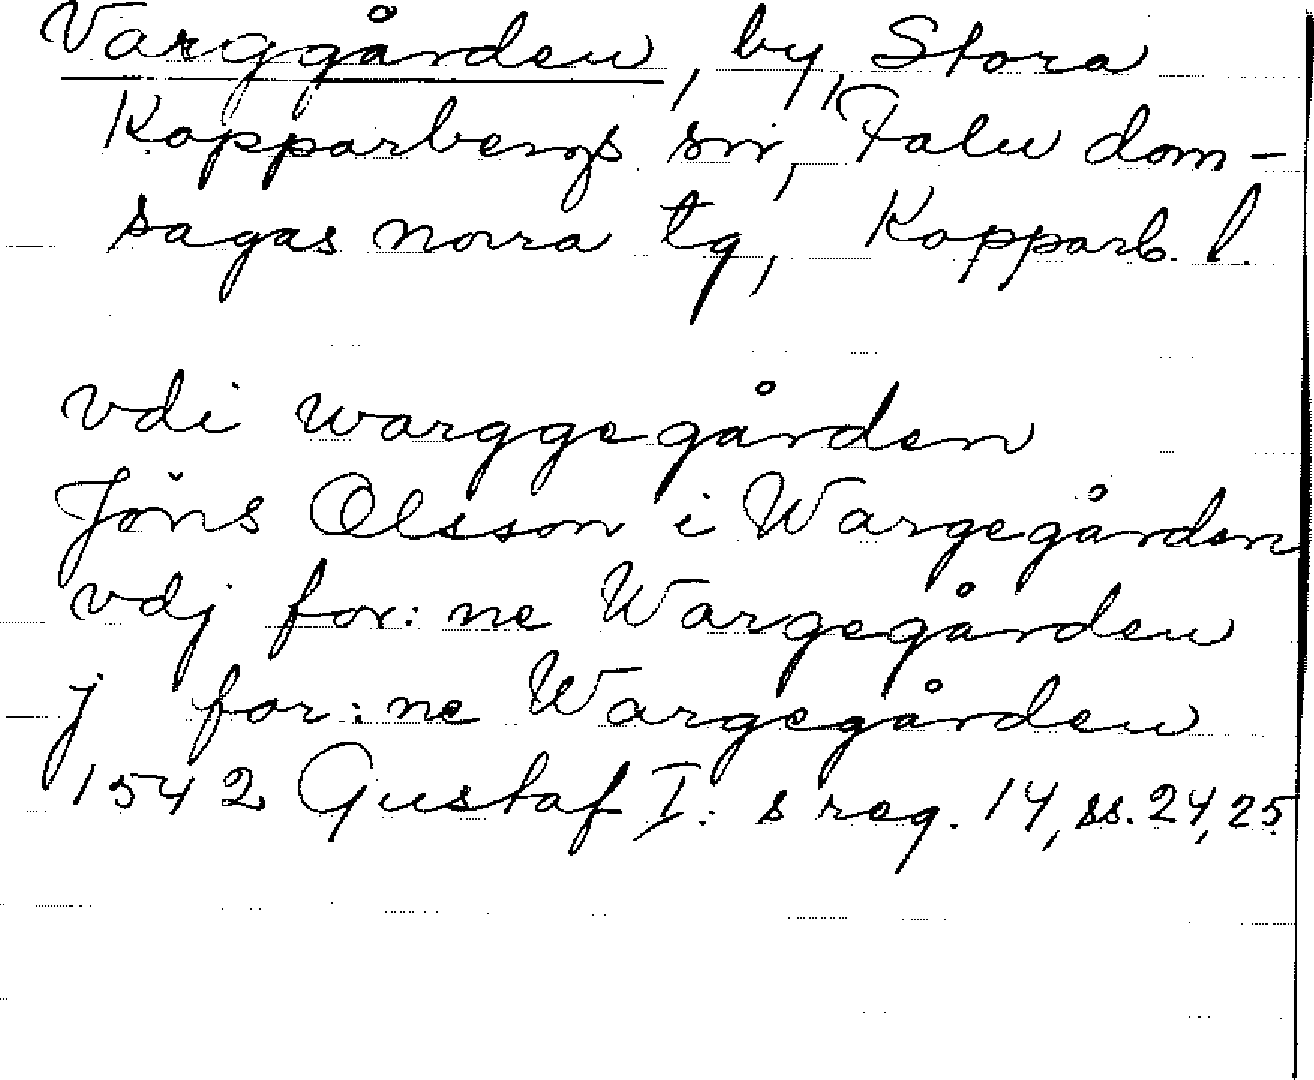 Varggården, by, Stora
Kopparbergs sn, Falu dom-
sagas norra tg, Kopparb. l.
vdi warggegården
Jöns Olsson i Wargegården
vdj for:ne Wargegården
j for:ne Wargegården
1542 Gustaf I:s reg. 14, ss. 24, 25